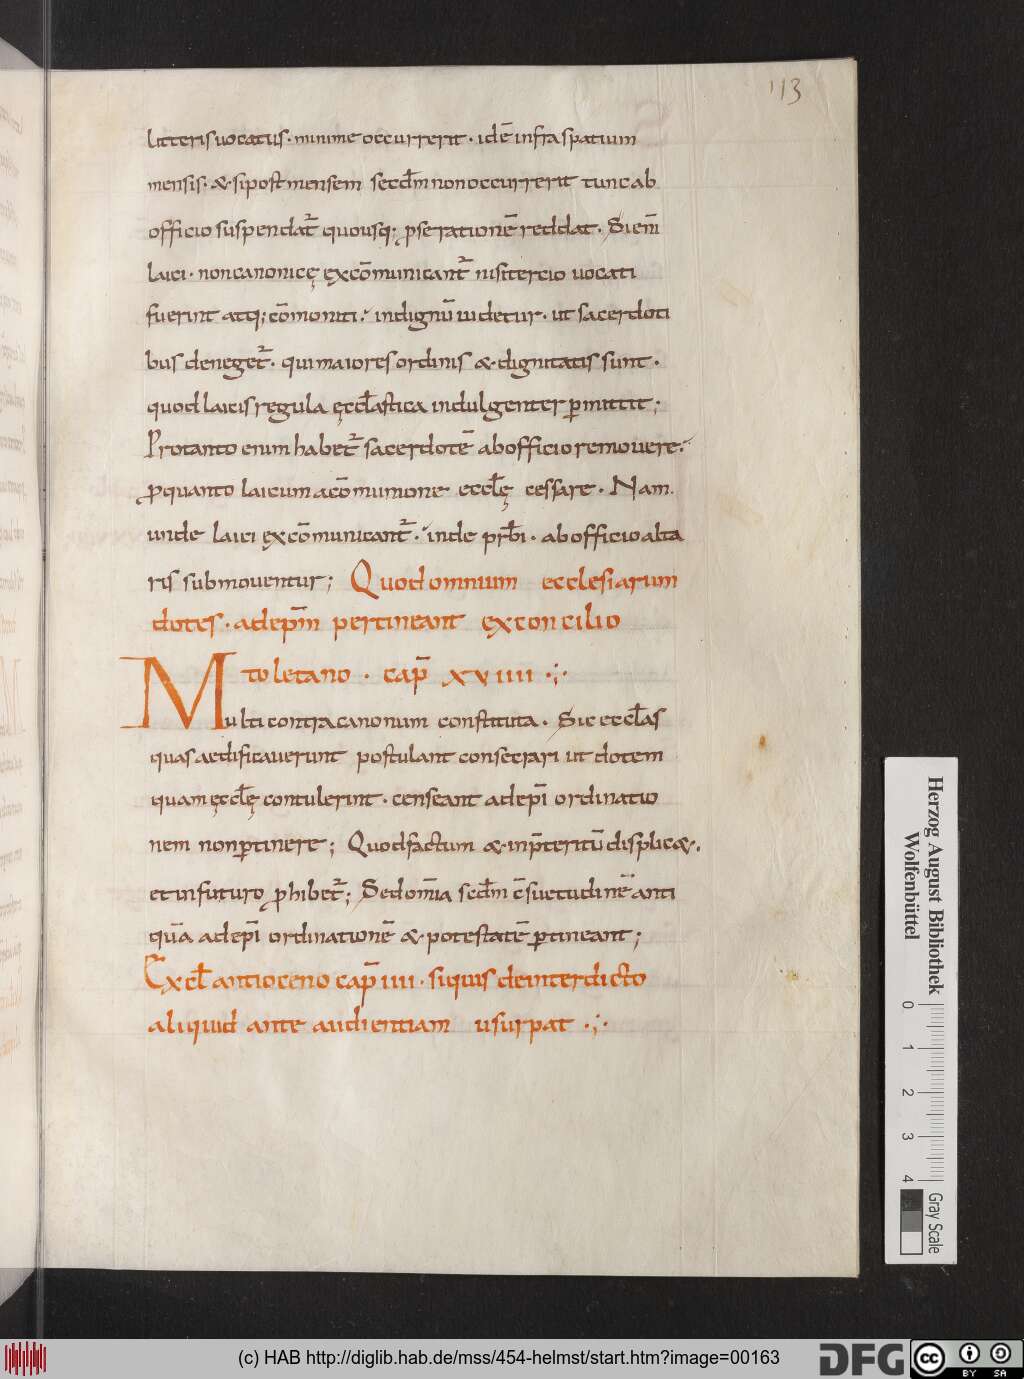 113
litteris uocatus · minime occurrerit · idē infra spatium
mensis · & si post mensem secdm̄ non occurrerit tunc ab
officio suspendat᷒ quousq; ꝓ se rationē reddat · Si eni̅
laici · non canonicę excōmunicant᷒ nisi tercio uocati
fuerint atq; cōmoniti · indignū uidetur · ut sacerdoti
bus deneget᷒ · qui maiores ordinis & dignitatis sunt ·
quod laicis regula ęccl̄astica indulgenter ꝑmittit ;
Pro tanto enim habet᷒ sacerdotē ab officio remouere ·
ꝓ quanto laicum a cōmunione eccl̄ę cessare · Nam
unde laici excōmunicant᷒ · inde prb̄i · ab officio alta
ris submouentur ; Quod omnium ecclesiarum
dotes · ad ep̄m pertineant ex concilio
toletano · cap̄ xviiii · ; ·
Multi contra canonum constituta · Sic eccl̄as
quas aedificauerunt postulant consecrari ut dotem
quam ęccl̄ę contulerint · censeant ad ep̄i ordinatio
nem non ꝑtinere ; Quod factum & in p̄teritū displic& ·
et in futuro ꝓhibet᷒ ; Sed om̄ia secdm̄ c̄suetudinē anti
quā ad ep̄i ordinationē & potestatē ꝑtineant ;
Ex cl̄ antioceno cap̄ iiii · siquis de interdicto
aliquid ante audientiam usurpat · ; ·
Herzog August Bibliothek
Wolfenbüttel
0 1 2 3 4
Gray Scale
(c) HAB http://diglib.hab.de/mss/454-helmst/start.htm?image=00163
DFG
cc BY SA